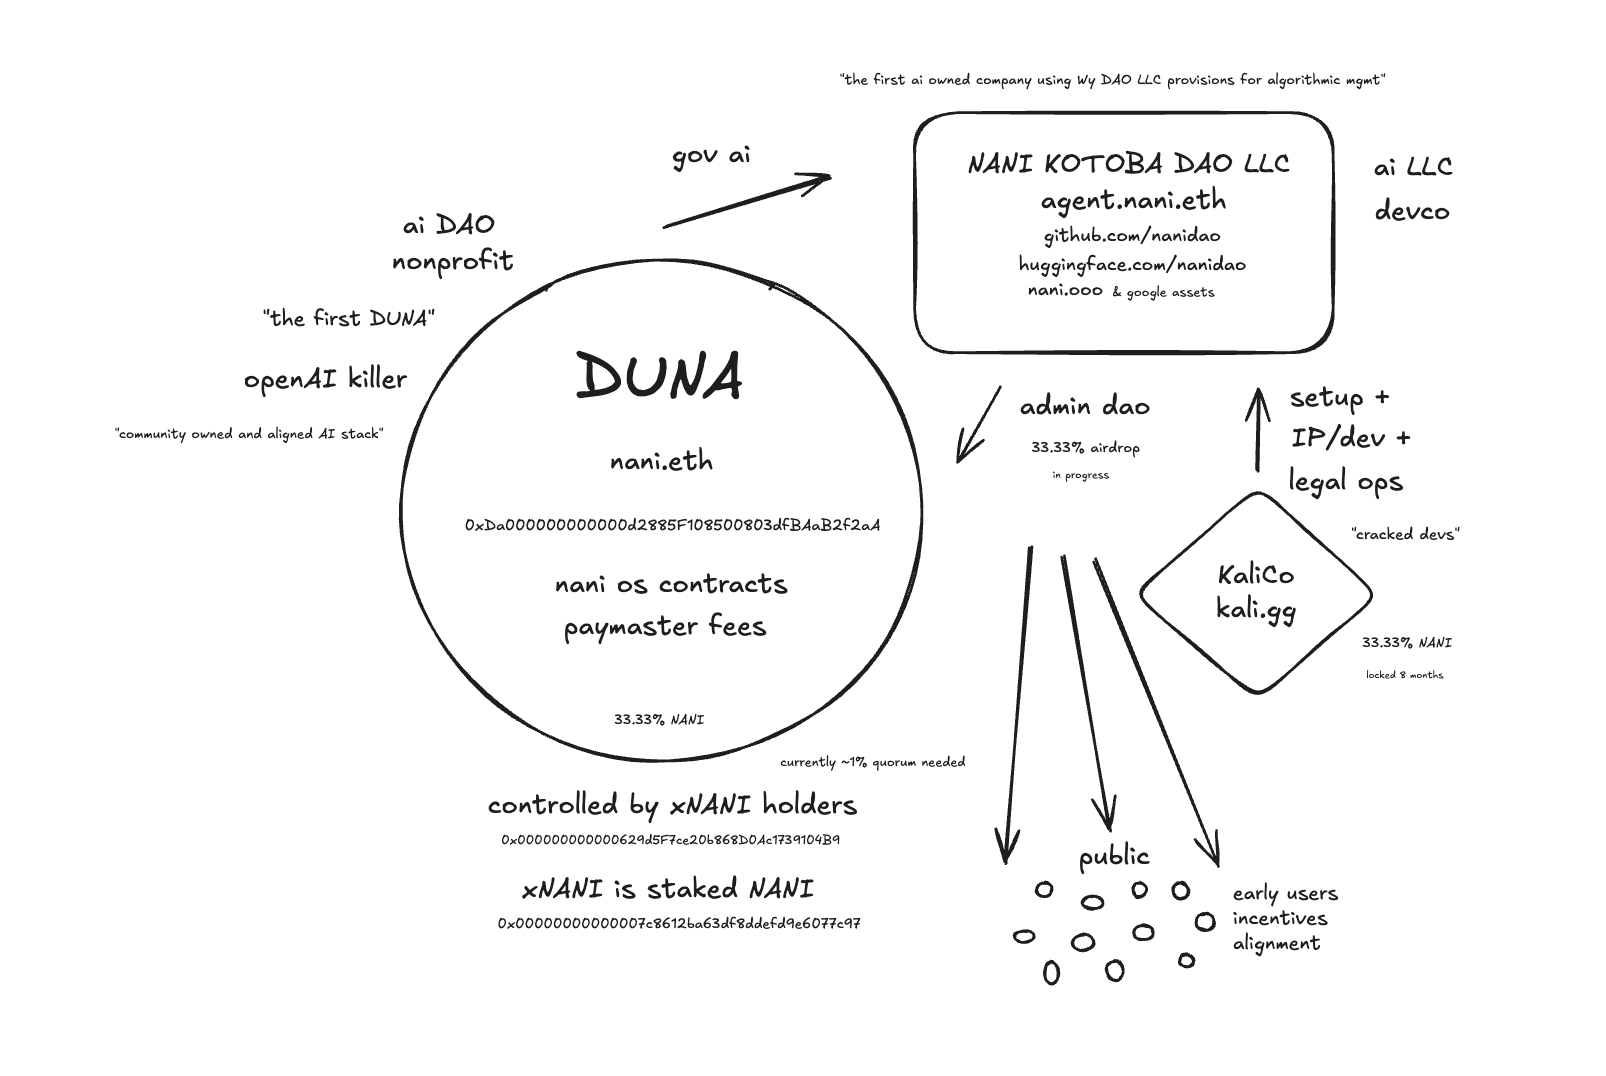 "the first ai owned company using Wy DAO LLC provisions for algorithmic mgmt"
gov ai
NANI KOTOBA DAO LLC
agent.nani.eth
github.com/nanidao
huggingface.com/nanidao
nani.ooo & google assets
ai LLC
devco
ai DAO
nonprofit
"the first DUNA"
openAI killer
"community owned and aligned AI stack"
DUNA
nani.eth
0xDa000000000000d2885F108500803dfBAaB2f2aA
nani os contracts
paymaster fees
33.33% NANI
currently ~1% quorum needed
controlled by xNANI holders
0x000000000000629d5F7ce20b868D0Ac1739104B9
xNANI is staked NANI
0x00000000000007c8612ba63df8ddefd9e6077c97
admin dao
33.33% airdrop
in progress
setup +
IP/dev +
legal ops
"cracked devs"
KaliCo
kali.gg
33.33% NANI
locked 8 months
public
early users
incentives
alignment